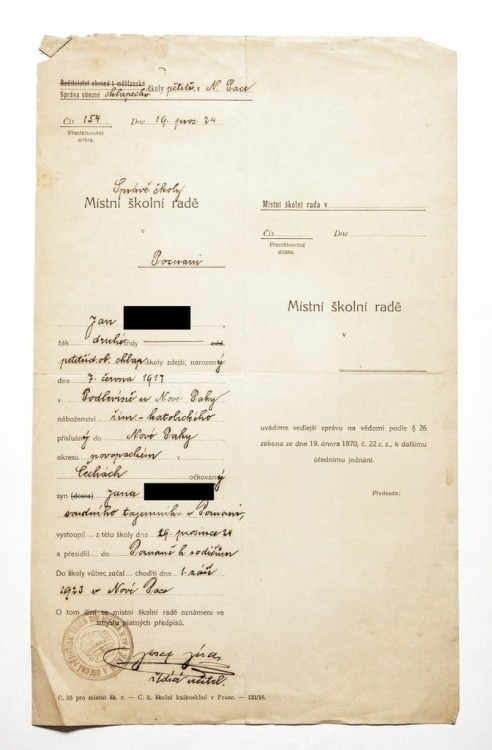 Ředitelství obecné i měšťanské
Správa obecné chlapecké školy pětitř. v N. Pace
Čís. 154 Dne 19. pros. 24
Přestěhování
dítěte.
Správě školy
Místní školní radě
v
Poznani
Jan
žák druhé třídy odd.
pětitřd. ob. chlap. školy zdejší, narozený
dne 7. června 1917
v Podlevíně u Nové Paky
náboženství řím-katolického
příslušný do Nové Paky
okresu novopackém v
Čechách očkovaný
syn (dcera) Jana
soudního tajemníka v Poznani,
vystoupil z této školy dne 29. prosince 24
a přesídlil do Poznaně k rodičům
Do školy vůbec začal choditi dne 1. září
1923 v Nové Pace
O tom činí se místní školní radě oznámení ve
smyslu platných předpisů.
Josef
řídící učitel.
Č. 35 pro místní šk. r. — C. k. školní knihosklad v Praze. — 133/18.
Místní školní rada v
Čís. Dne
Přestěhování
dítěte.
Místní školní radě
v
uvádíme vedlejší zprávu na vědomí podle § 26
zákona ze dne 19. února 1870, č. 22 z. z., k dalšímu
úřednímu jednání.
Předseda: